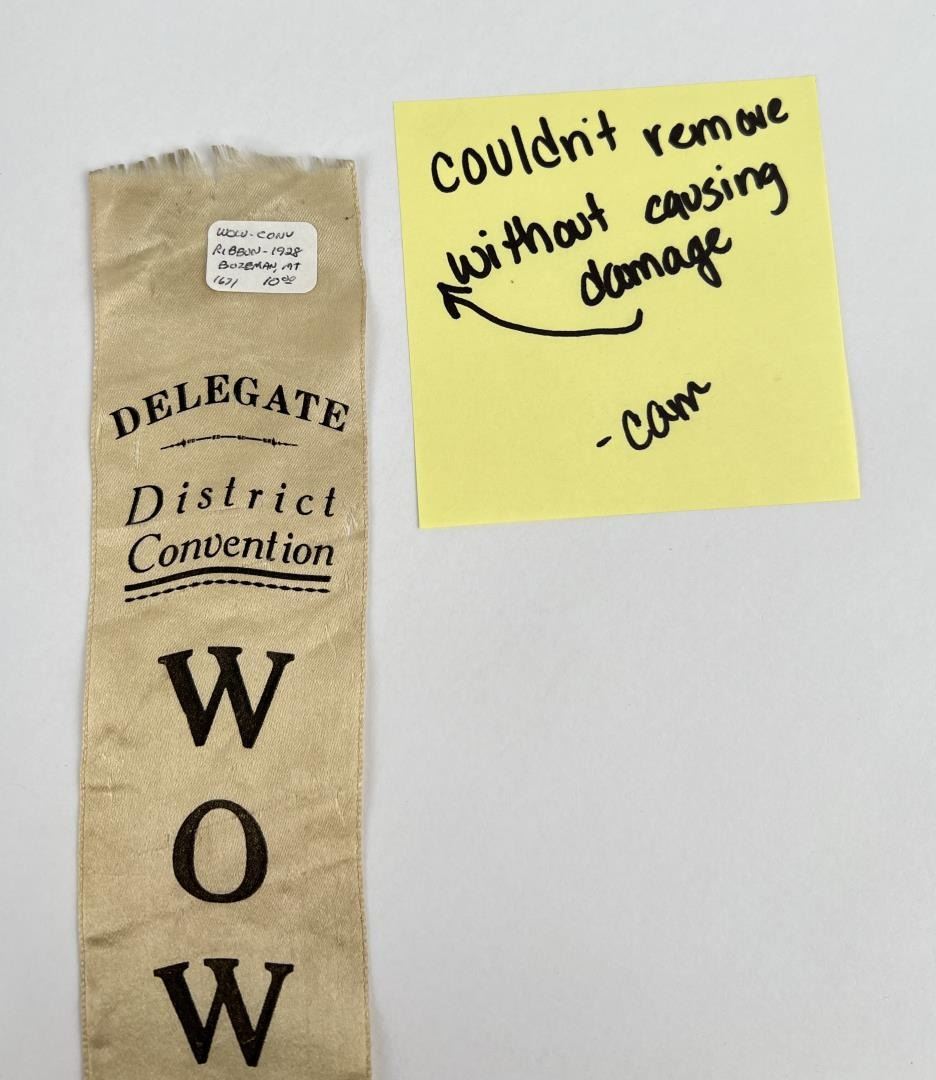 WOW-CONV
RIBBON-1928
BOZEMAN, MT
1671 10⁰⁰
DELEGATE
District
Convention
W
O
W
couldn't remove
without causing
damage
-cam